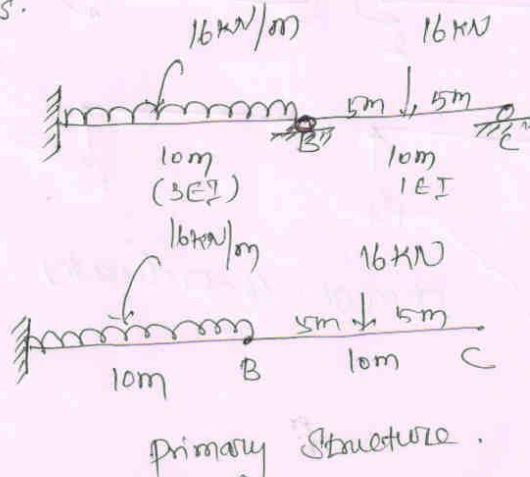 s.
16KN/m 16KN
5m 5m
B C
10m 10m
(3EI) 1EI
16KN/m 16KN
5m 5m
10m B 10m C
Primary Structure.